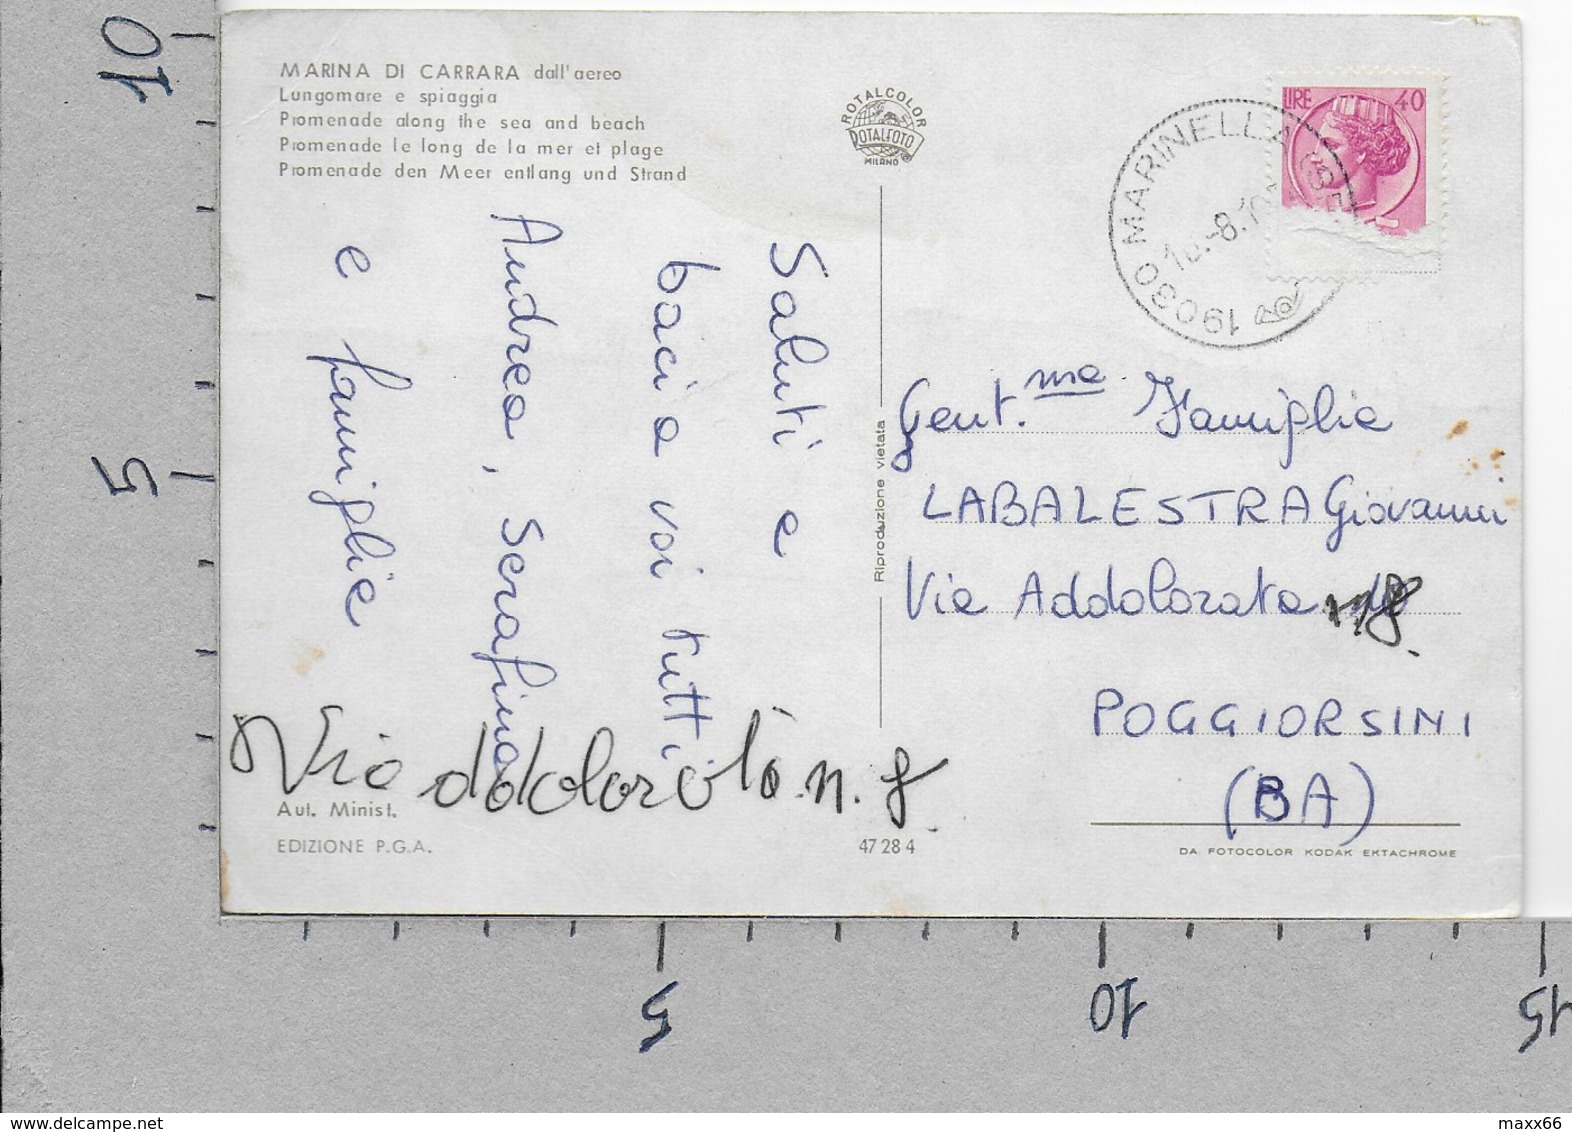 MARINA DI CARRARA dall'aereo
Lungomare e spiaggia
Promenade along the sea and beach
Promenade le long de la mer et plage
Promenade den Meer entlang und Strand
ROTALCOLOR
ROTALFOTO
MILANO
LIRE 40
19030 MARINELLA
Saluti e
baci a voi tutti
Andrea, Serafina
e famiglie
Riproduzione vietata
Gent.me Famiglie
LABALESTRA Giovanni
Via Addolorata
n 8.
POGGIORSINI
(BA)
Via n. 8
Aut. Minist.
EDIZIONE P.G.A.
47 28 4
DA FOTOCOLOR KODAK EKTACHROME
10
5
5
10
15
delcampe.net
maxx66